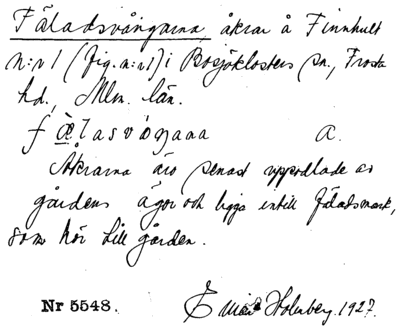 Fäladsvångarna, åkrar å Finnhult
n:r 1 (fig. n:r 1) i Bosjöklosters sn., Frosta
hd., Mlm. län.
fæ̀lasvȧŋana a.
Åkrarna äro senast uppodlade av
gårdens ägor och ligga intill fäladsmark,
som hör till gården.
Nr 5548. E Holmberg. 1927.